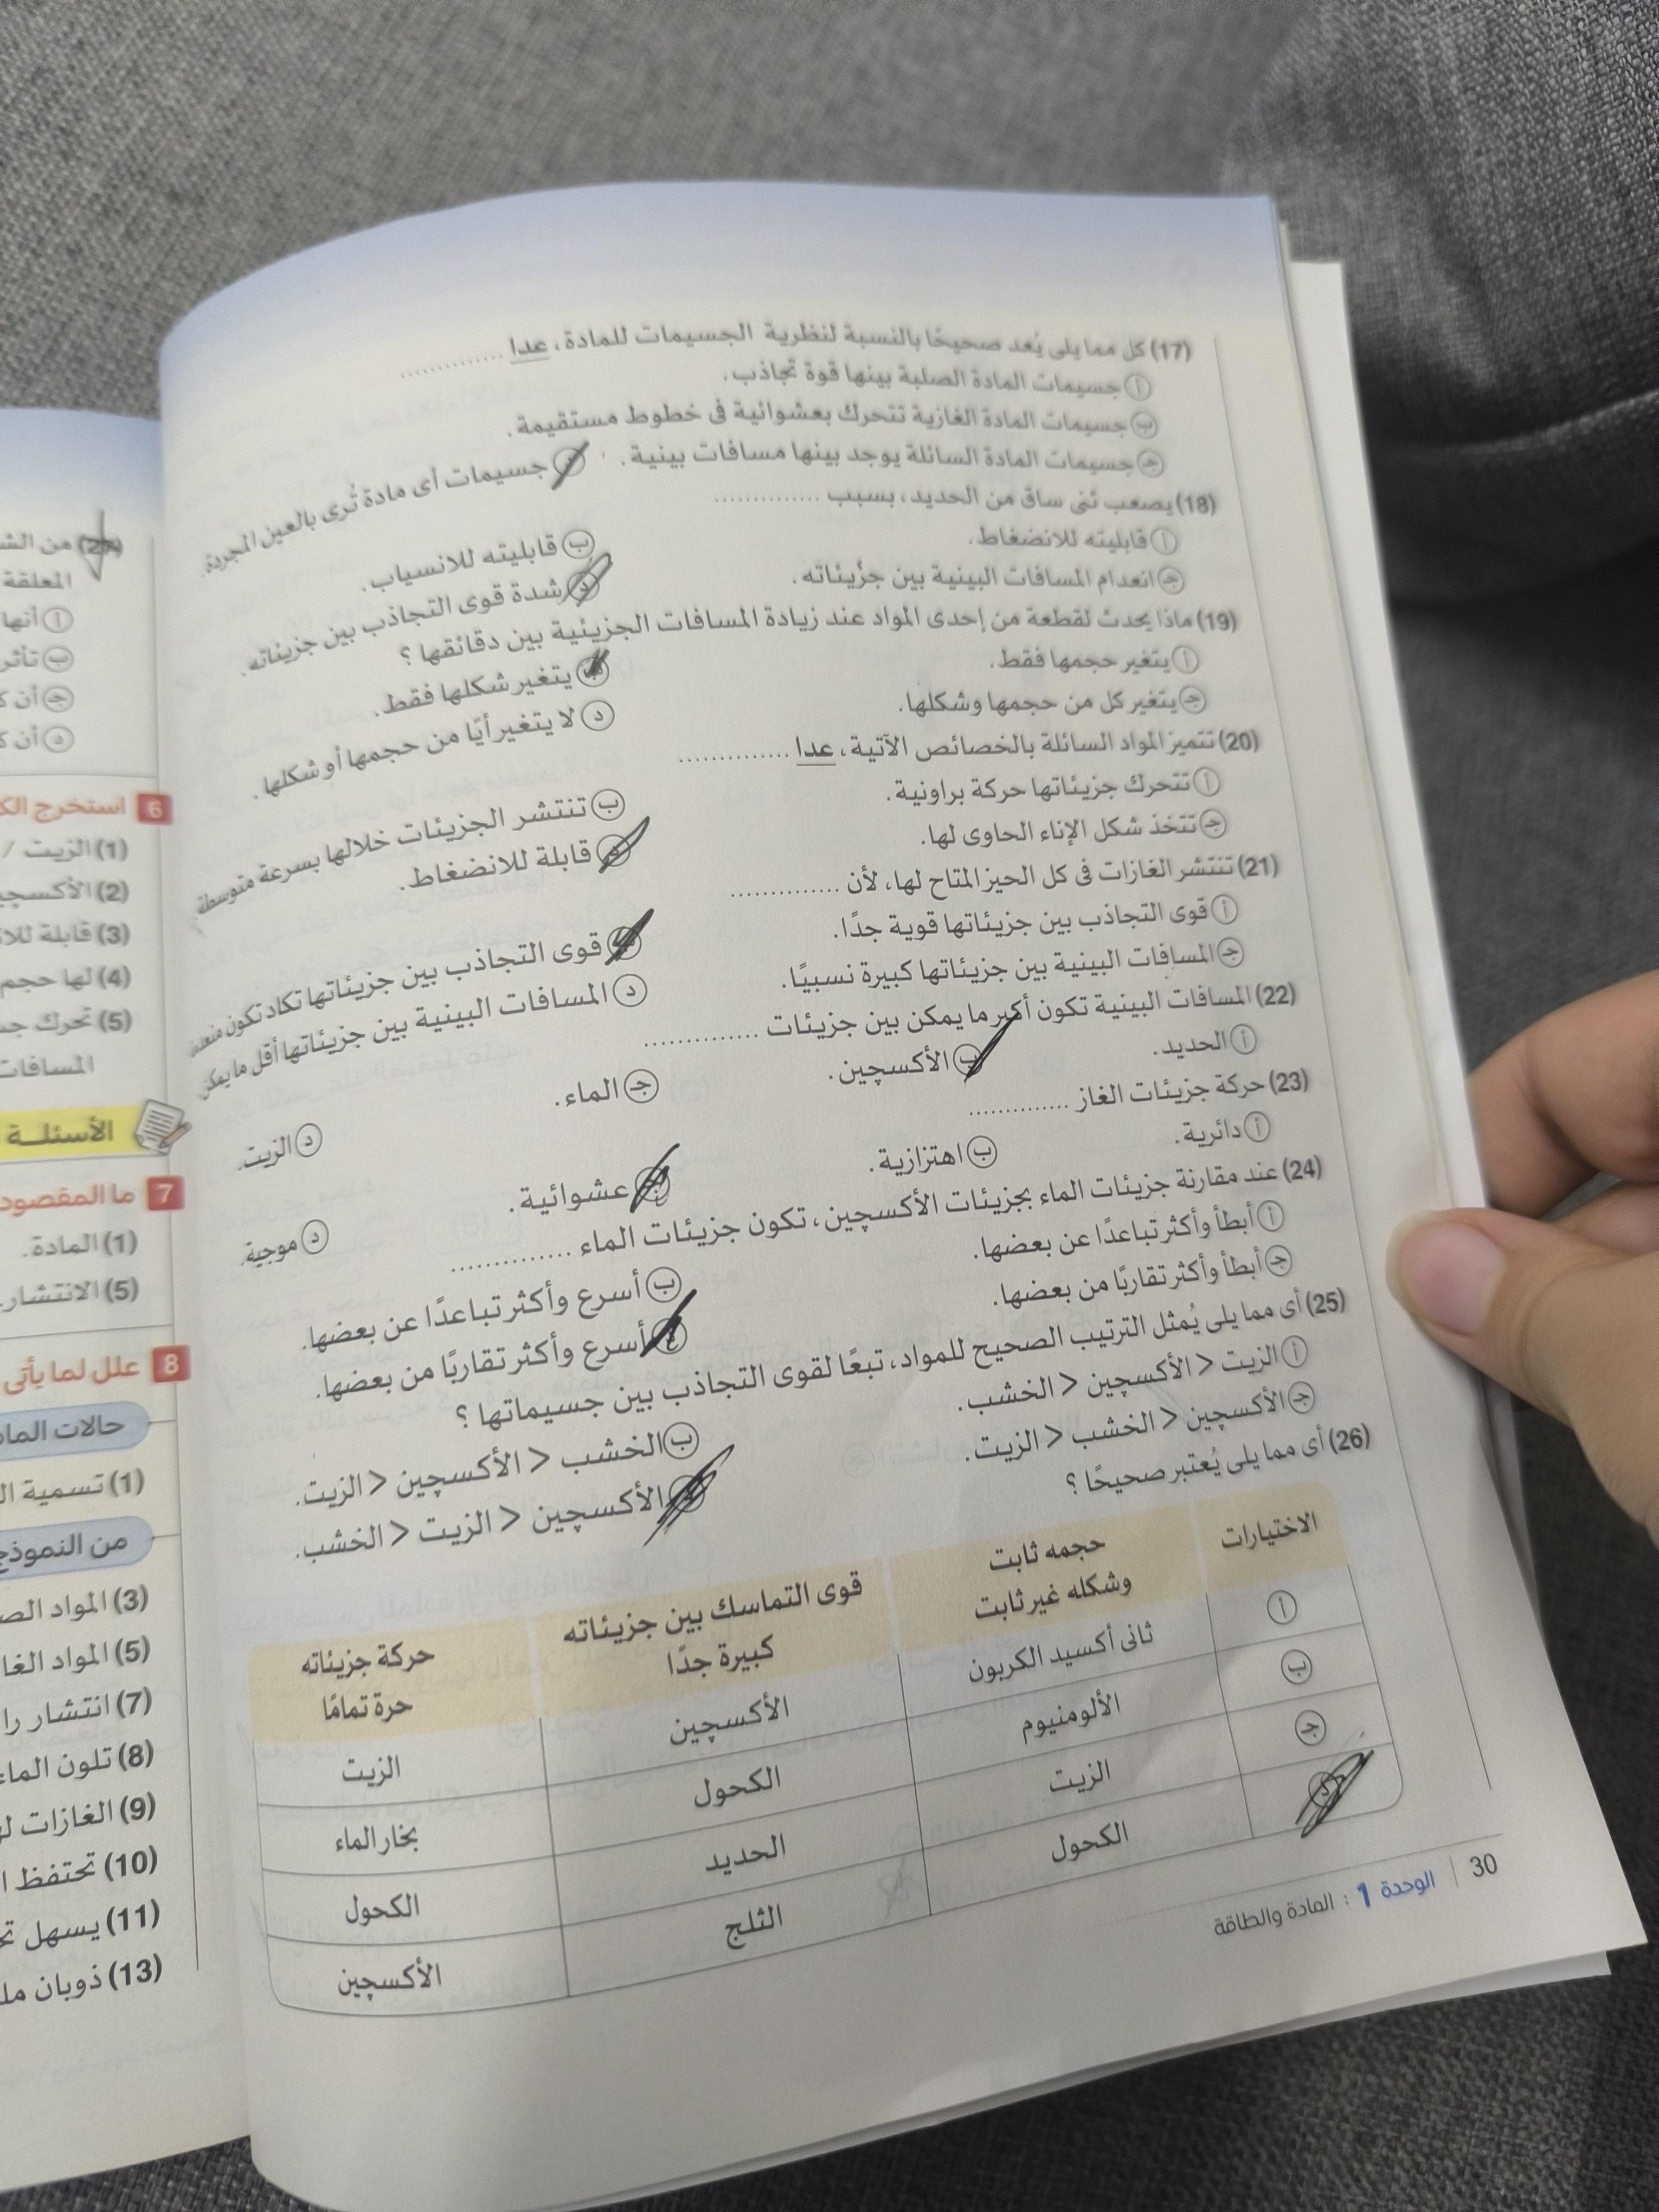 (17) كل مما يلى يُعد صحيحًا بالنسبة لنظرية الجسيمات للمادة، عدا ............
أ جسيمات المادة الصلبة بينها قوة تجاذب.
ب جسيمات المادة الغازية تتحرك بعشوائية فى خطوط مستقيمة.
جـ جسيمات المادة السائلة يوجد بينها مسافات بينية. د جسيمات أى مادة تُرى بالعين المجردة.
(18) يصعب ثنى ساق من الحديد، بسبب ............
أ قابليته للانضغاط. ب قابليته للانسياب.
جـ انعدام المسافات البينية بين جزيئاته. د شدة قوى التجاذب بين جزيئاته.
(19) ماذا يحدث لقطعة من إحدى المواد عند زيادة المسافات الجزيئية بين دقائقها ؟
أ يتغير حجمها فقط. ب يتغير شكلها فقط.
جـ يتغير كل من حجمها وشكلها. د لا يتغير أيًا من حجمها أو شكلها.
(20) تتميز المواد السائلة بالخصائص الآتية، عدا ............
أ تتحرك جزيئاتها حركة براونية. ب تنتشر الجزيئات خلالها بسرعة متوسطة
جـ تتخذ شكل الإناء الحاوى لها. د قابلة للانضغاط.
(21) تنتشر الغازات فى كل الحيز المتاح لها، لأن ............
أ قوى التجاذب بين جزيئاتها قوية جدًا. ب قوى التجاذب بين جزيئاتها تكاد تكون
جـ المسافات البينية بين جزيئاتها كبيرة نسبيًا. د المسافات البينية بين جزيئاتها أقل ما يمكن
(22) المسافات البينية تكون أكبر ما يمكن بين جزيئات ............
أ الحديد. ب الأكسچين. جـ الماء. د الزيت.
(23) حركة جزيئات الغاز ............
أ دائرية. ب اهتزازية. جـ عشوائية. د موجية.
(24) عند مقارنة جزيئات الماء بجزيئات الأكسچين، تكون جزيئات الماء ............
أ أبطأ وأكثر تباعدًا عن بعضها. ب أسرع وأكثر تباعدًا عن بعضها.
جـ أبطأ وأكثر تقاربًا من بعضها. د أسرع وأكثر تقاربًا من بعضها.
(25) أى مما يلى يُمثل الترتيب الصحيح للمواد، تبعًا لقوى التجاذب بين جسيماتها ؟
أ الزيت < الأكسچين < الخشب. ب الخشب < الأكسچين < الزيت.
جـ الأكسچين < الخشب < الزيت. د الأكسچين < الزيت < الخشب.
(26) أى مما يلى يُعتبر صحيحًا ؟
الاختيارات حجمه ثابت وشكله غير ثابت قوى التماسك بين جزيئاته كبيرة جدًا حركة جزيئاته حرة تمامًا
أ ثانى أكسيد الكربون الأكسچين الزيت
ب الألومنيوم الكحول بخار الماء
جـ الزيت الحديد الكحول
د الكحول الثلج الأكسچين
30 الوحدة 1 : المادة والطاقة
من الش
المعلقة
أ أنها
ب تأثر
جـ أن ك
د أن ك
6 استخرج الك
(1) الزيت /
(2) الأكسچي
(3) قابلة للا
(4) لها حجم
(5) تحرك جس
المسافات
الأسئلــة
7 ما المقصود
(1) المادة.
(5) الانتشار.
8 علل لما يأتى
حالات الماد
(1) تسمية ال
من النموذج
(3) المواد الص
(5) المواد الغا
(7) انتشار را
(8) تلون الماء
(9) الغازات ل
(10) تحتفظ ا
(11) يسهل تح
(13) ذوبان مل